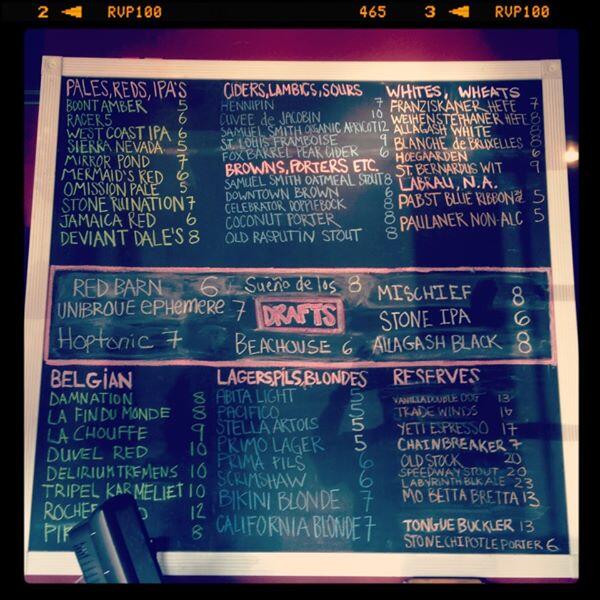 2 RVP100 465 3 RVP100
PALES, REDS, IPA'S
BOONT AMBER 5
RACER 5 6
WEST COAST IPA 6
SIERRA NEVADA 5
MIRROR POND 7
MERMAID'S RED 6
OMISSION PALE 5
STONE RUINATION 7
JAMAICA RED 6
DEVIANT DALE'S 8
CIDERS, LAMBICS, SOURS
HENNIPIN 7
CUVEE de JACOBIN 10
SAMUEL SMITH ORGANIC APRICOT 12
ST. LOUIS FRAMBOISE 9
FOX BARREL PEAR CIDER 6
BROWNS, PORTERS ETC
SAMUEL SMITH OATMEAL STOUT 8
DOWNTOWN BROWN 6
CELEBRATOR DOPPLEBOCK 8
COCONUT PORTER 6
OLD RASPUTIN STOUT 8
WHITES, WHEATS
FRANZISKANER HEFE 7
WEIHENSTEPHANER HEFE 8
ALLAGASH WHITE 8
BLANCHE de BRUXELLES 8
HOEGAARDEN 6
ST. BERNARDUS WIT 9
LABRAU, N.A.
PABST BLUE RIBBON 5
PAULANER NON-ALC 5
RED BARN 6
UNIBROUE EPHEMERE 7
Hoptonic 7
Sueño de los 8
DRAFTS
BEACHOUSE 6
MISCHIEF 8
STONE IPA 6
ALLAGASH BLACK 8
BELGIAN
DAMNATION 8
LA FIN DU MONDE 8
LA CHOUFFE 9
DUVEL RED 10
DELIRIUM TREMENS 10
TRIPEL KARMELIET 10
ROCHE 12
8
LAGERS, PILS, BLONDES
ABITA LIGHT 5
PACIFICO 5
STELLA ARTOIS 5
PRIMO LAGER 5
PRIMA PILS 6
SCRIMSHAW 6
BIKINI BLONDE 7
CALIFORNIA BLONDE 7
RESERVES
VANILLA DOUBLE DOG 13
TRADE WINDS 16
YETI ESPRESSO 17
CHAINBREAKER 7
OLD STOCK 20
SPEEDWAY STOUT 20
LABYRINTH BLK ALE 23
MO BETTA BRETTA 13
TONGUE BUCKLER 13
STONE CHIPOTLE PORTER 6